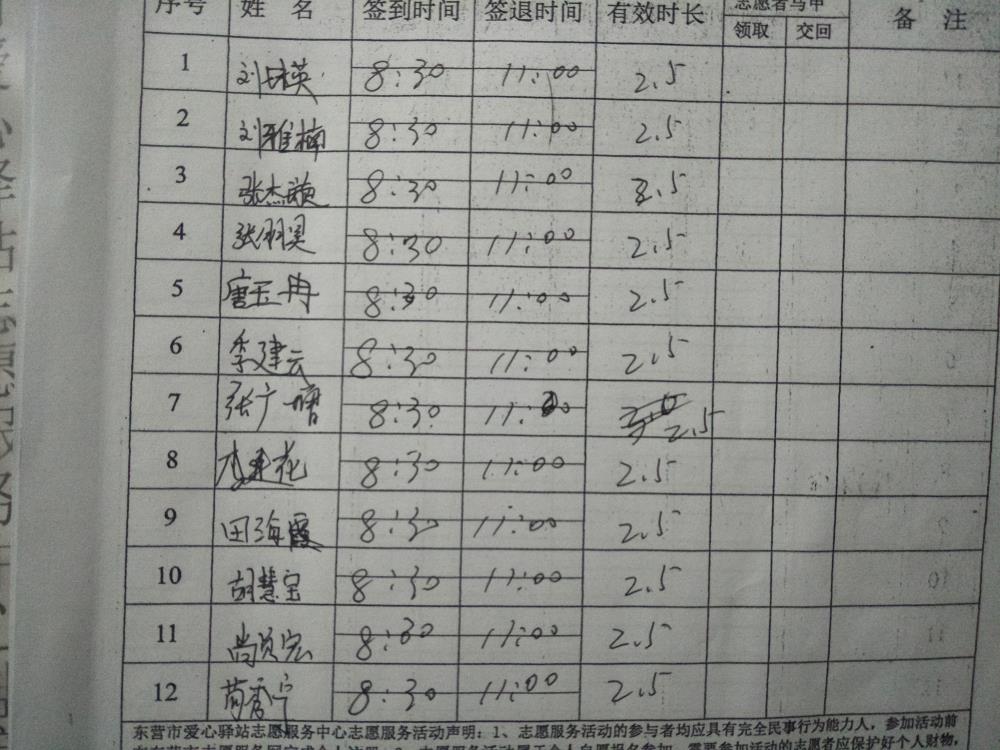 序号 姓 名 签到时间 签退时间 有效时长 志愿者马甲 备 注
领取 交回
1 刘培英 8:30 11:00 2.5
2 刘雅楠 8:30 11:00 2.5
3 张杰颖 8:30 11:00 2.5
4 张翔昊 8:30 11:00 2.5
5 唐玉冉 8:30 11:00 2.5
6 李建云 8:30 11:00 2.5
7 张广增 8:30 11:00 2.5
8 花 8:30 11:00 2.5
9 田海霞 8:30 11:00 2.5
10 胡慧宝 8:30 11:00 2.5
11 尚宏 8:30 11:00 2.5
12 8:30 11:00 2.5
东营市爱心驿站志愿服务中心志愿服务活动声明:1、志愿服务活动的参与者均应具有完全民事行为能力人,参加活动前